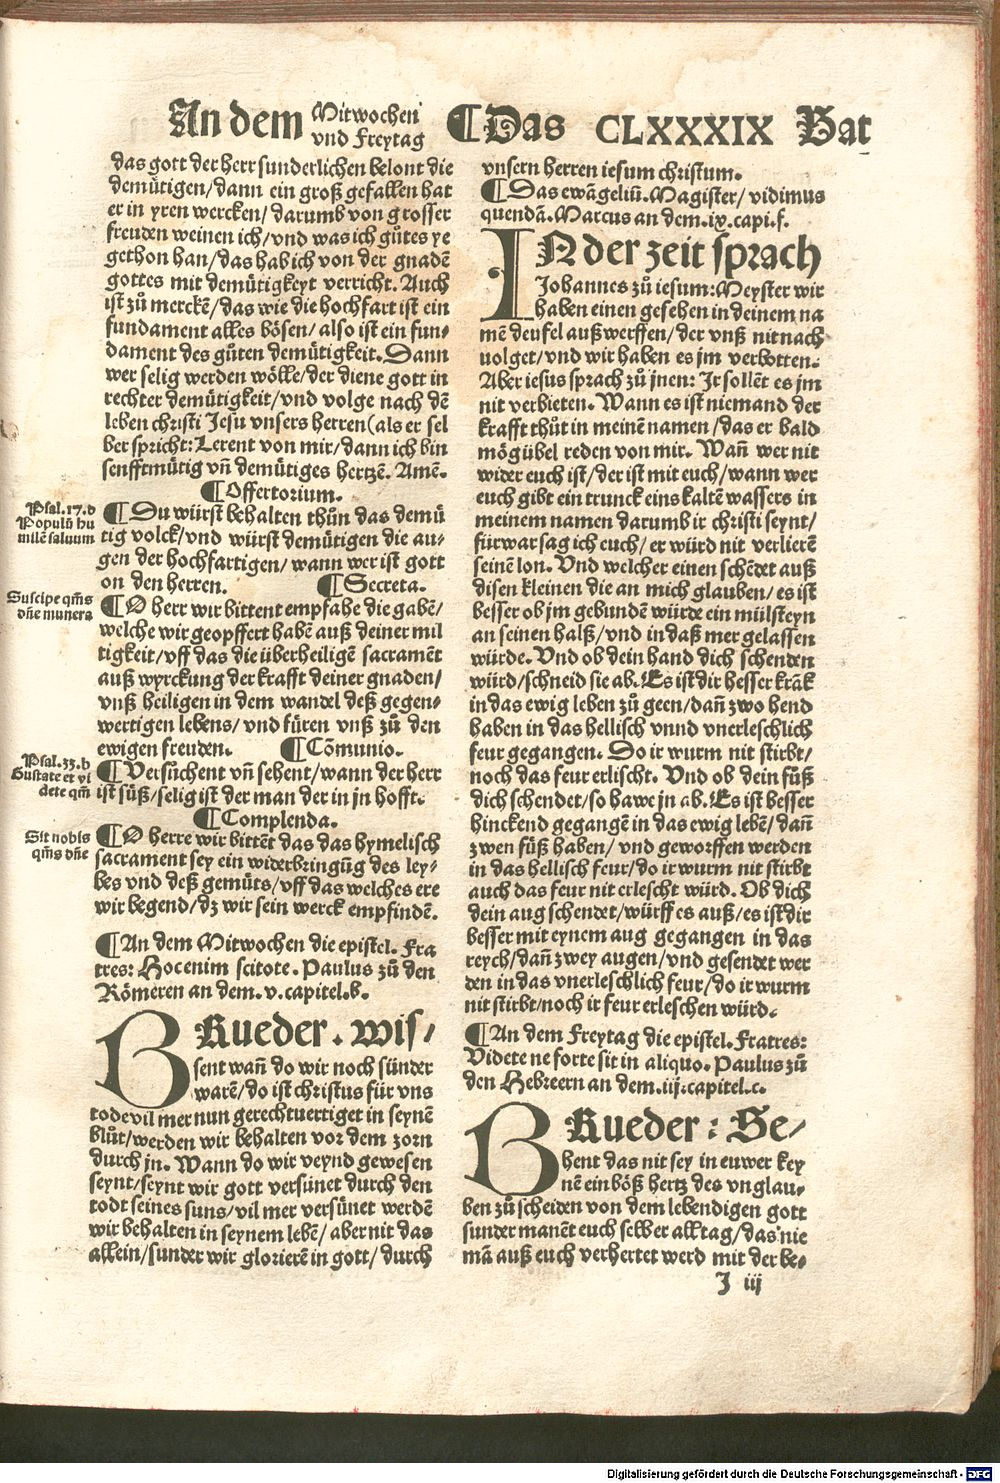 An dem Mitwochen vnd Freytag ¶Das CLXXXIX Bat
das gott der herr sunderlichen belont die
demuͤtigen/dann ein groß gefallen hat
er in yren wercken/darumb von grosser
freuden weinen ich/vnd was ich guͤtes ye
gethon han/das hab ich von der gnadē
gottes mit demuͤtigkeyt verricht. Auch
ist zuͦ merckē/das wie die hochfart ist ein
fundament alles boͤsen/also ist ein fun-
dament des guͤten demuͤtigkeit. Dann
wer selig werden woͤlle/der diene gott in
rechter demuͤtigkeit/vnd volge nach dē
leben christi Jesu vnsers herren(als er sel
ber spricht: Lerent von mir/dann ich bin
senfftmuͤtig vn̄ demuͤtiges hertzē. Amē.
¶Offertorium.
Psal.17.d
Populū hu
milē saluum
¶Du wuͤrst behalten thuͦn das demuͤ
tig volck/vnd wuͤrst demuͤtigen die au-
gen der hochfartigen/wann wer ist gott
on den herren. ¶Secreta.
Suscipe qm̄s
dn̄e munera
¶O herr wir bittent empfahe die gabē/
welche wir geopffert habē auß deiner mil
tigkeit/vff das die uͤberheiligē sacramēt
auß wyrckung der krafft deiner gnaden/
vnß heiligen in dem wandel deß gegen-
wertigen lebens/vnd fuͤren vnß zuͦ den
ewigen freuden. ¶Cōmunio.
Psal.33.b
Gustate et vi
dete qm̄
¶Versuͦchent vn̄ sehent/wann der herr
ist suͤß/selig ist der man der in jn hofft.
¶Complenda.
Sit nobis
qm̄s dn̄e
¶O herre wir bittēt das das hymelisch
sacrament sey ein widerbringūg des ley-
bes vnd deß gemuͤts/vff das welches ere
wir begend/dz wir sein werck empfindē.
¶An dem Mitwochen die epistel. Fra
tres: Hocenim scitote. Paulus zuͦ den
Roͤmeren an dem.v.capitel.b.
BRueder. wis/
sent wañ do wir noch suͤnder
warē/do ist christus fuͤr vns
tode vil mer nun gerechtuertiget in seynē
bluͦt/werden wir behalten vor dem zorn
durch jn. Wann do wir veynd gewesen
seynt/seynt wir gott versuͤnet durch den
todt seines suns/vil mer versuͤnet werdē
wir behalten in seynem lebē/aber nit das
allein/sunder wir glorierē in gott/durch
vnsern herren iesum christum.
¶Das ewāgeliū. Magister/vidimus
quendā. Marcus an dem.ix.capi.f.
IN der zeit sprach
Johannes zuͦ iesum: Meyster wir
haben einen gesehen in deinem na
mē deufel außwerffen/der vnß nit nach
uolget/vnd wir haben es jm verbotten.
Aber iesus sprach zuͦ jnen: Jr sollēt es jm
nit verbieten. Wann es ist niemand der
krafft thuͦt in meinē namen/das er bald
moͤg uͤbel reden von mir. Wañ wer nit
wider euch ist/der ist mit euch/wann wer
euch gibt ein trunck eins kaltē wassers in
meinem namen darumb ir christi seynt/
fuͤrwar sag ich euch/er wuͤrd nit verlierē
seinē lon. Vnd welcher einen schēdet auß
disen kleinen die an mich glauben/es ist
besser ob jm gebundē wuͤrde ein muͤlsteyn
an seinen halß/vnd in daß mer gelassen
wuͤrde. Vnd ob dein hand dich schenden
wuͤrd/schneid sie ab. Es ist dir besser krāk
in das ewig leben zuͦ geen/dañ zwo hend
haben in das hellisch vnnd vnerleschlich
feur gegangen. Do ir wurm nit stirbt/
noch das feur erlischt. Vnd ob dein fuͦß
dich schendet/so hawe jn ab. Es ist besser
hinckend gegangē in das ewig lebē/dañ
zwen fuͤß haben/vnd geworffen werden
in das hellisch feur/do ir wurm nit stirbt
auch das feur nit erlescht wuͤrd. Ob dich
dein aug schendet/wuͤrff es auß/es ist dir
besser mit eynem aug gegangen in das
reych/dañ zwey augen/vnd gesendet wer
den in das vnerleschlich feur/do ir wurm
nit stirbt/noch ir feur erleschen wuͤrd.
¶An dem Freytag die epistel. Fratres:
Videte ne forte sit in aliquo. Paulus zuͦ
den Hebreern an dem.iij.capitel.c.
BRueder: Se/
hent das nit sey in euwer key
nē ein boͤß hertz des vnglau-
ben zuͦ scheiden von dem lebendigen gott
sunder manēt euch selber alltag/das nie
mā auß euch verhertet werd mit der be-
J iij
Digitalisierung gefördert durch die Deutsche Forschungsgemeinschaft - DFG